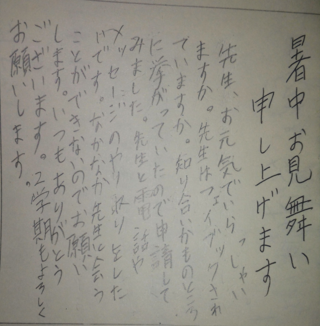 暑中お見舞い
申し上げます
先生、お元気でいらっしゃい
ますか。先生はフェイブックされ
ていますか。知り合いかものところ
に挙がっていたので申請して
みました。先生と電話や
メッセージのやり取りをした
いです。なかなか先生に会う
ことができないのでお願い
します。いつもありがとう
ございます。2学期もよろしく
お願いします。